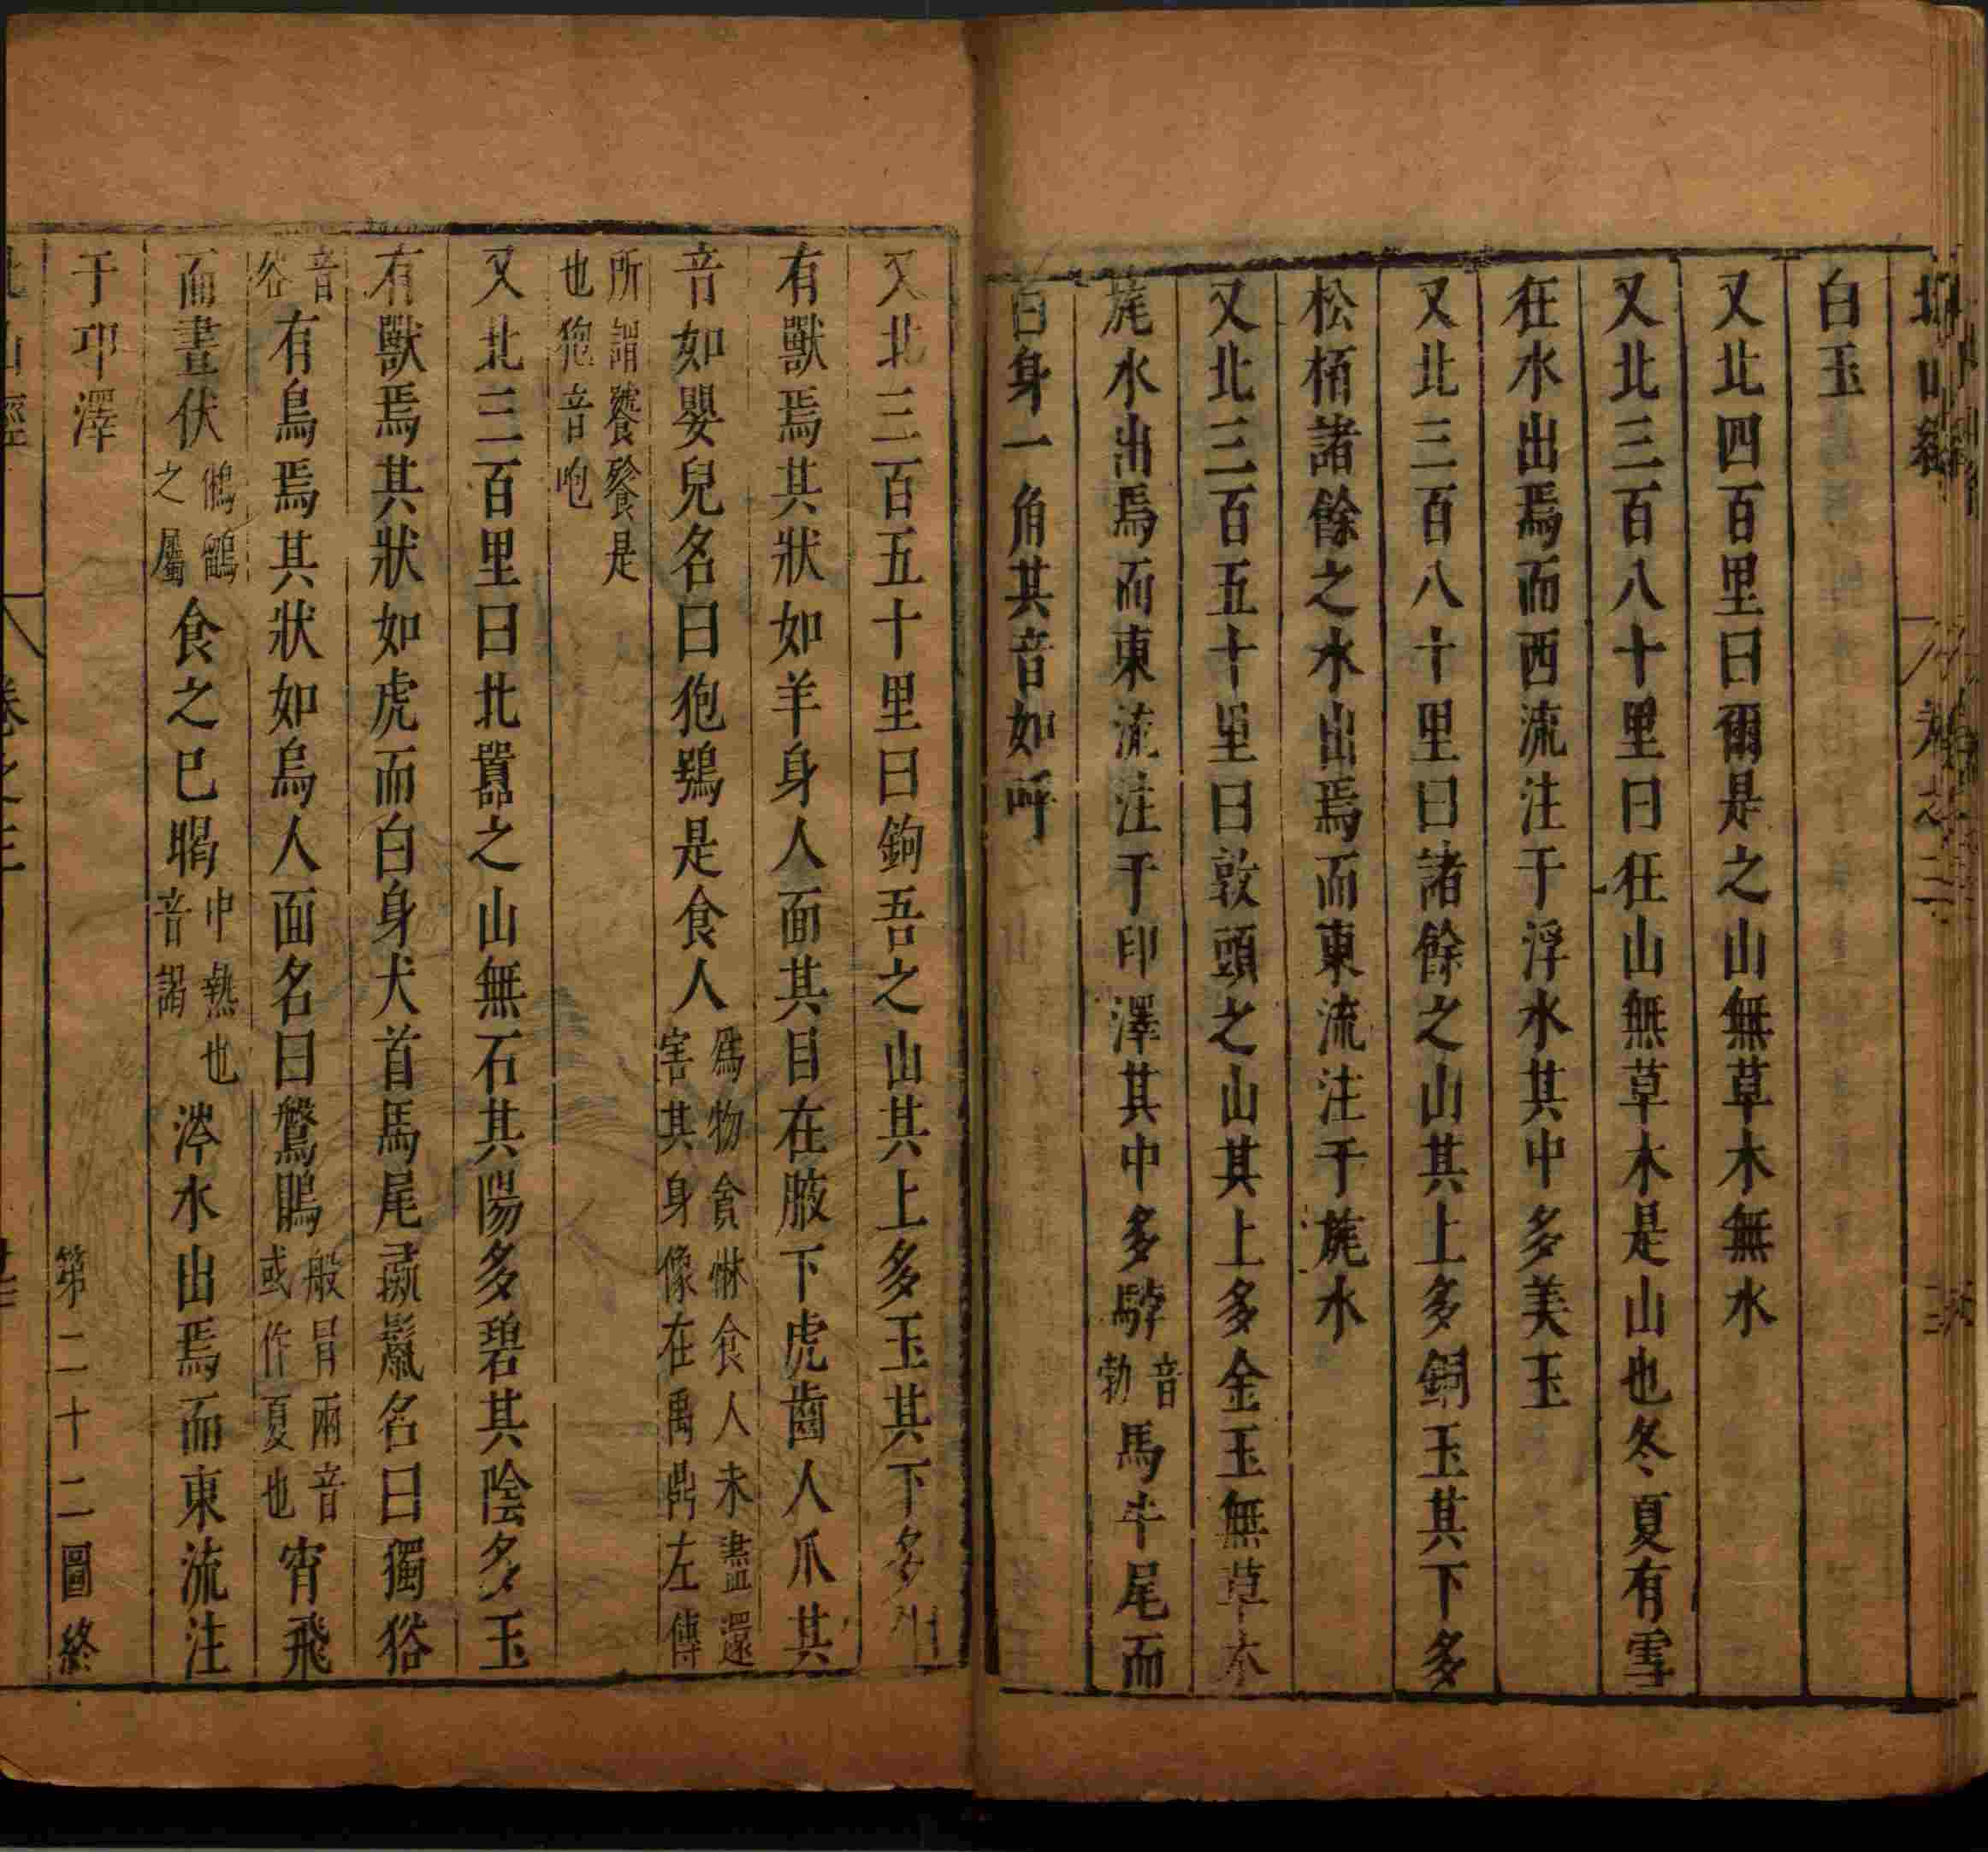 北山經
白玉
又北四百里曰爾是之山無草木無水
又北三百八十里曰狂山無草木是山也冬夏有雪
狂水出焉而西流注于浮水其中多美玉
又北三百八十里曰諸餘之山其上多銅玉其下多
松栢諸餘之水出焉而東流注于旄水
又北三百五十里曰敦頭之山其上多金玉無草木
旄水出焉而東流注于印澤其中多䮀音勃馬牛尾而
白身一角其音如呼
又北三百五十里曰鉤吾之山其上多玉其下多
有獸焉其狀如羊身人面其目在腋下虎齒人爪其
音如嬰兒名曰狍鴞是食人爲物貪惏食人未盡還害其身像在禹鼎左傳
所謂饕餮是也狍音咆
又北三百里曰北嚻之山無石其陽多碧其陰多玉
有獸焉其狀如虎而白身犬首馬尾彘鬛名曰獨𤞞
音谷有鳥焉其狀如烏人面名曰鷩䳃般冐兩音或作夏也宵飛
而晝伏鵂鶹之屬食之已暍中熱也音謁涔水出焉而東流注
于邛澤 第二十二圖終